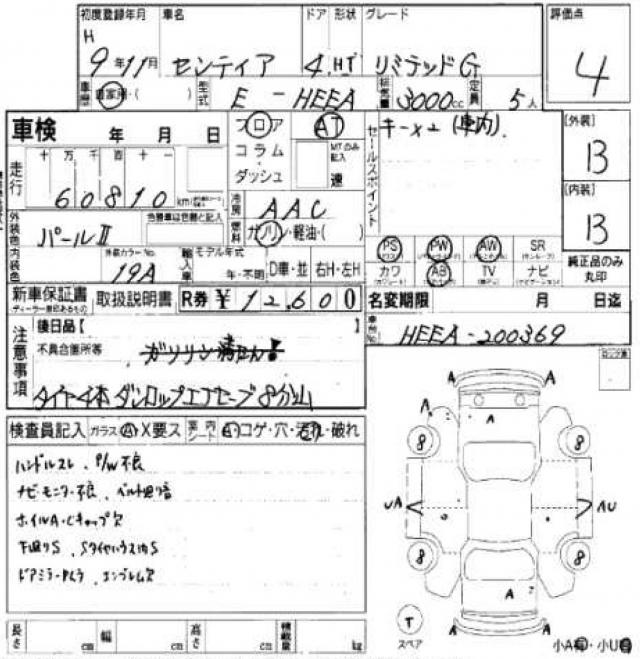 初度登録年月 車名 ドア 形状 グレード 評価点
H 9年11月 センティア 4 HT リミテッドG 4
車歴 自家用・( ) 型式 E-HEEA 排気量 3000cc 定員 5人
車検 年 月 日 フロア AT セールスポイント キー×2(車内). [外装] B
コラム MTのみ記入
ダッシュ 速
走行 十 万 千 百 十 一
60810 km
冷房 AAC [内装] B
外装色 パールII 色替車は色替と記入 燃料 ガソリン・軽油・( )
PS PW AW SR
カワ AB TV ナビ 純正品のみ丸印
内装色 外装カラーNo. 19A 輸入車 モデル年式 年・不明 D車・並 右H・左H
新車保証書 取扱説明書 R券 ¥12,600 名変期限 月 日迄
ディーラー無印あるもの
車台No. HEEA-200369
注意事項 後日品【 】
不具合箇所等
タイヤ4本ダンロップエフセーブ8分山
検査員記入 ガラス A・X要ス 室内シート A・コゲ・穴・汚れ・破れ
ハンドルスレ、P/W不良
ナビ・モニター不良、ベルト廻り音
ホイルA・Cキャップ欠
下廻りS、SタイヤハウスS
エンブレム欠
A A
A A
8 8
UA AU
8 8
A
A A
T
スペア
小A有・小U有
長さ cm 幅 cm 高さ cm 積載量 kg